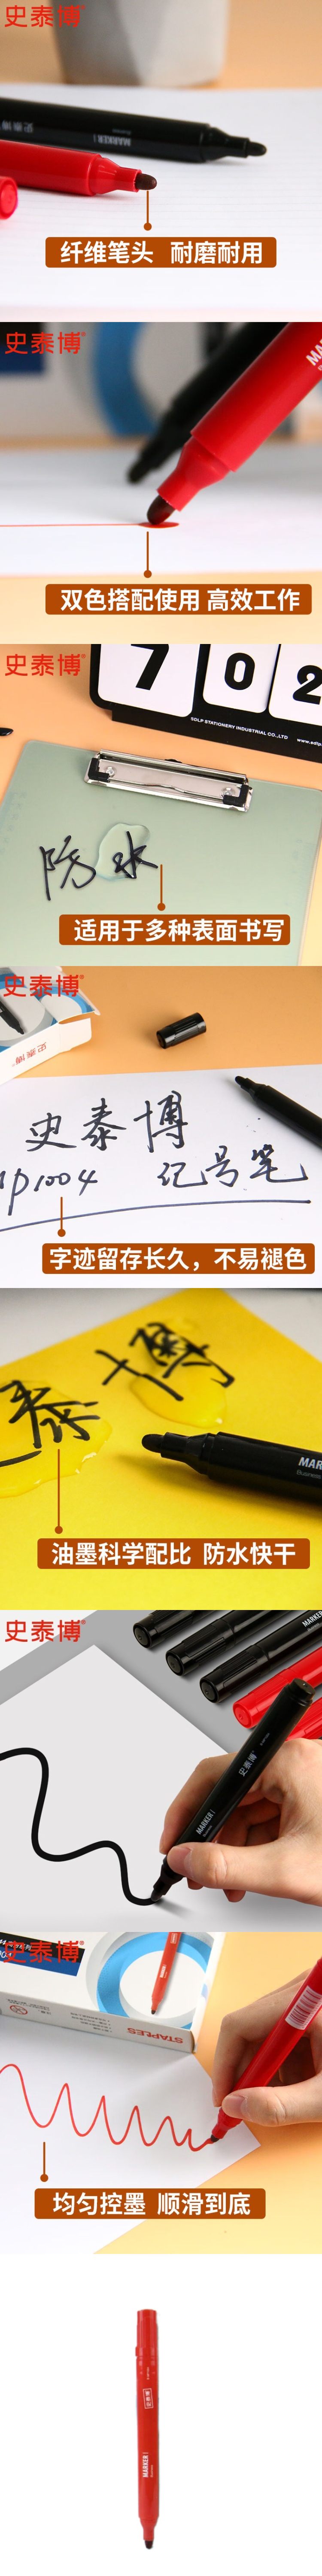 史泰博®
史泰博
MARKER
纤维笔头 耐磨耐用
史泰博®
MA
双色搭配使用 高效工作
史泰博®
7 0 2
SDLP STATIONERY INDUSTRIAL CO.,LTD
www.sdlp
防水
适用于多种表面书写
史泰博®
史泰博
史泰博
1004 记号笔
字迹留存长久，不易褪色
泰博
MAR
Business
油墨科学配比 防水快干
史泰博®
MARKER
史泰博
MARKER
史泰博®
STAPLES
均匀控墨 顺滑到底
史泰博
MARKER